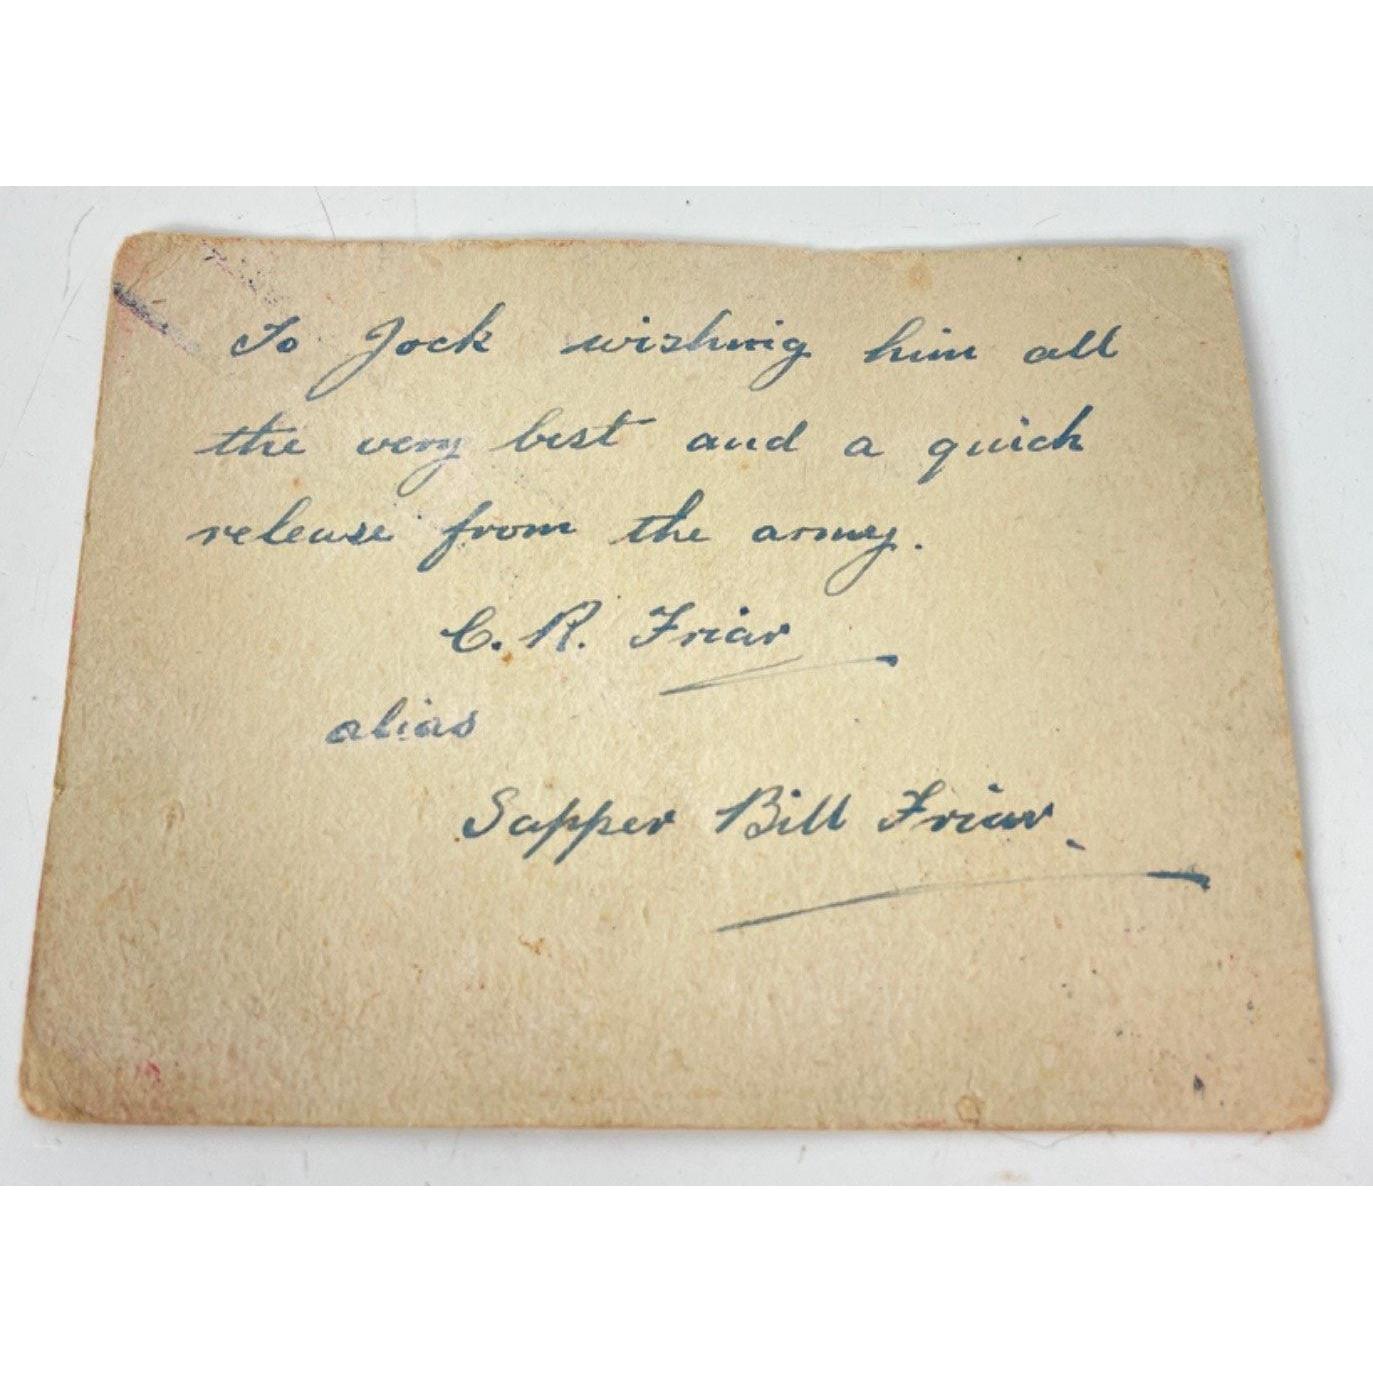 To Jock wishing him all
the very best and a quick
release from the army.
C. R. Friar
alias
Sapper Bill Friar.